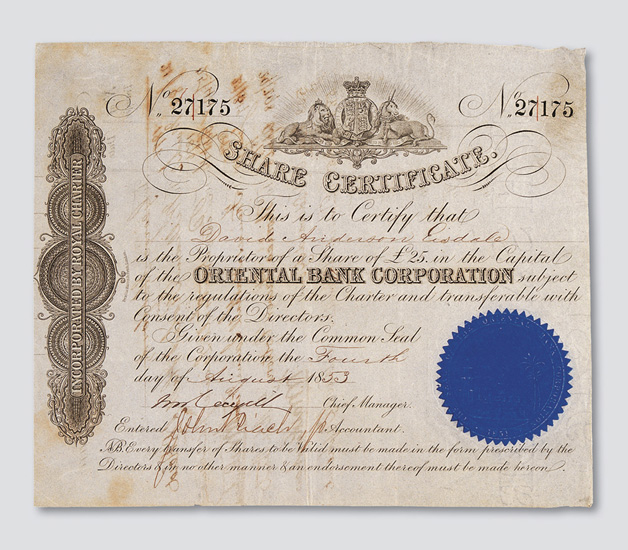 No. 27175
No. 27175
SHARE CERTIFICATE.
INCORPORATED BY ROYAL CHARTER
This is to Certify that
David Anderson Eisdale
is the Proprietor of a Share of £25. in the Capital
of the ORIENTAL BANK CORPORATION subject
to the regulations of the Charter and transferable with
Consent of the Directors.
Given under the Common Seal
of the Corporation, the Fourth
day of August 1853
Chief Manager.
Entered John Accountant.
NB. Every transfer of Shares to be Valid must be made in the form prescribed by the
Directors & in no other manner & an endorsement thereof must be made hereon.